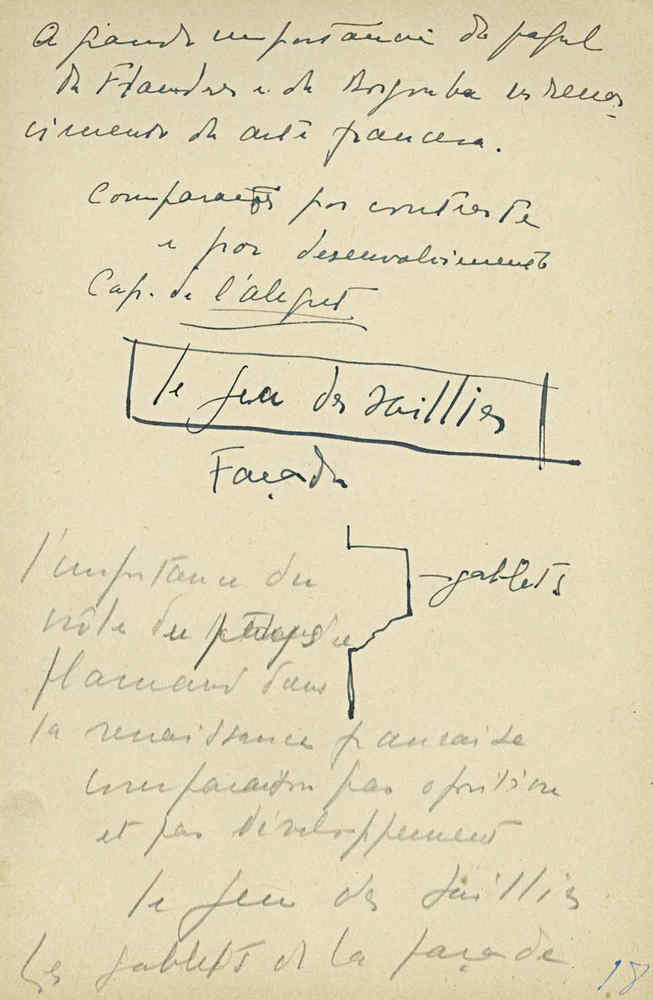 A grande importancia do papel
da Flandres e da Borgonha no renas
cimento da arte francesa.
Comparação por contraste
e por desenvolvimento
Cap. de
le jeu des saillies
Façade
gablets
l'importance du
rôle du
flamand dans
la renaissance francaise
comparaison par oposition
et par développement
le jeu des saillies
Les gablets de la façade
18